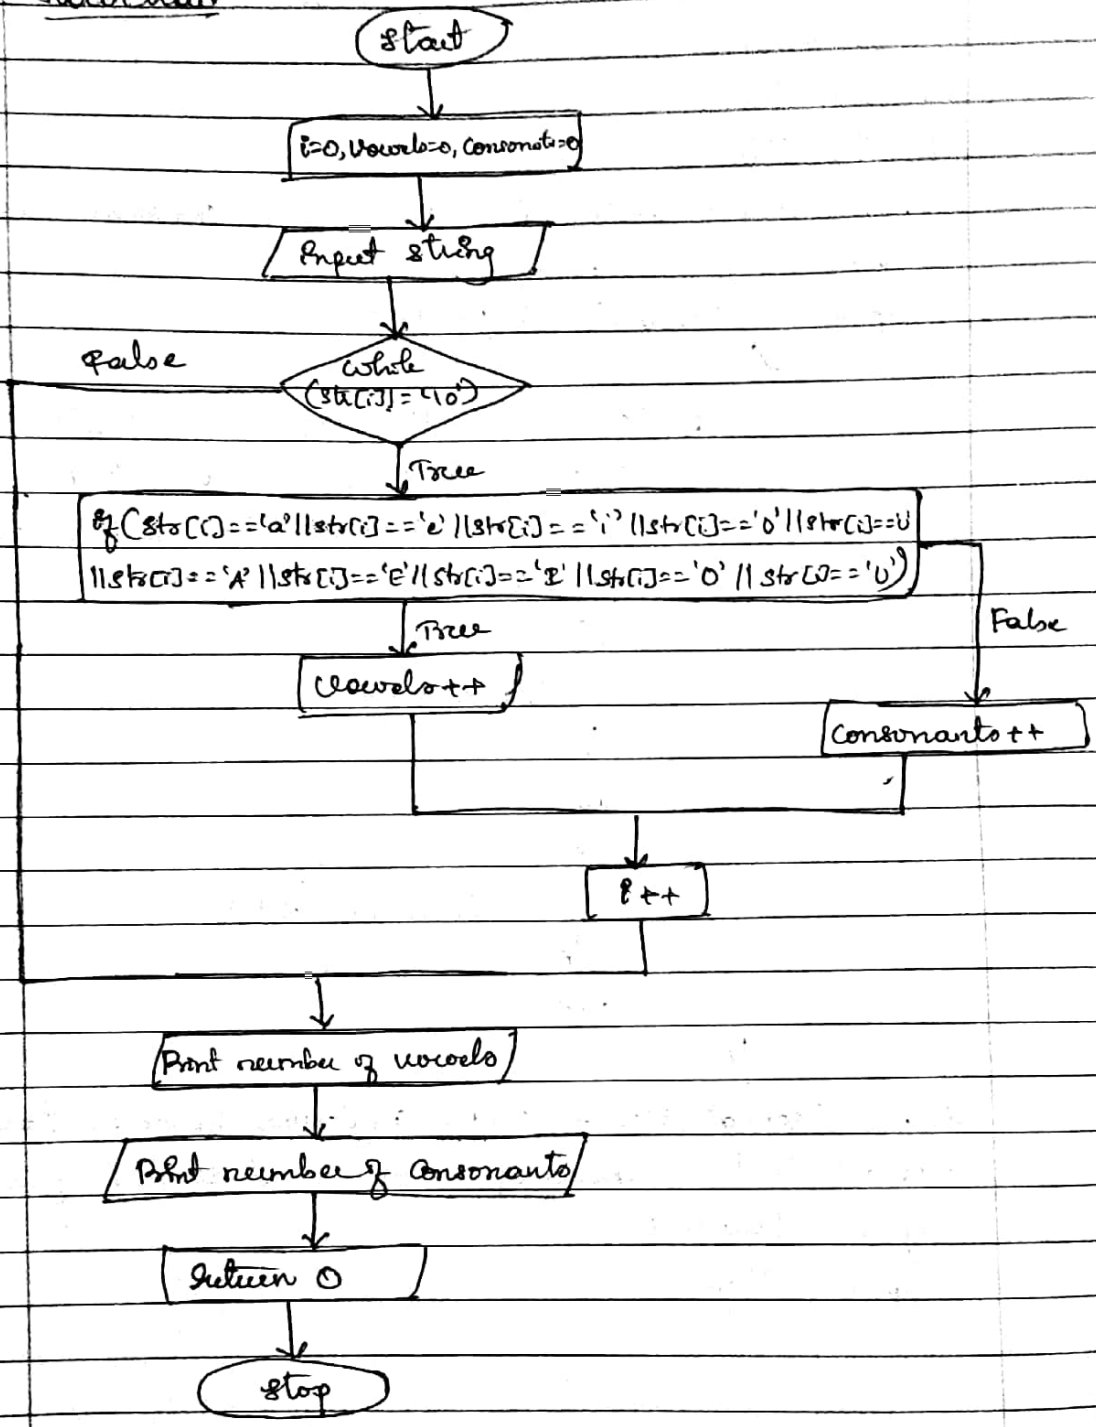 Start
i=0, Vowels=0, Consonats=0
Input string
False
while
(str[i]!='\0')
True
if(str[i]=='a'||str[i]=='e'||str[i]=='i'||str[i]=='o'||str[i]==U
||str[i]=='A'||str[i]=='E'||str[i]=='I'||str[i]=='O'||str[i]=='U')
True
False
Vowels++
Consonants++
i++
Print number of vowels
Print number of Consonants
return 0
Stop